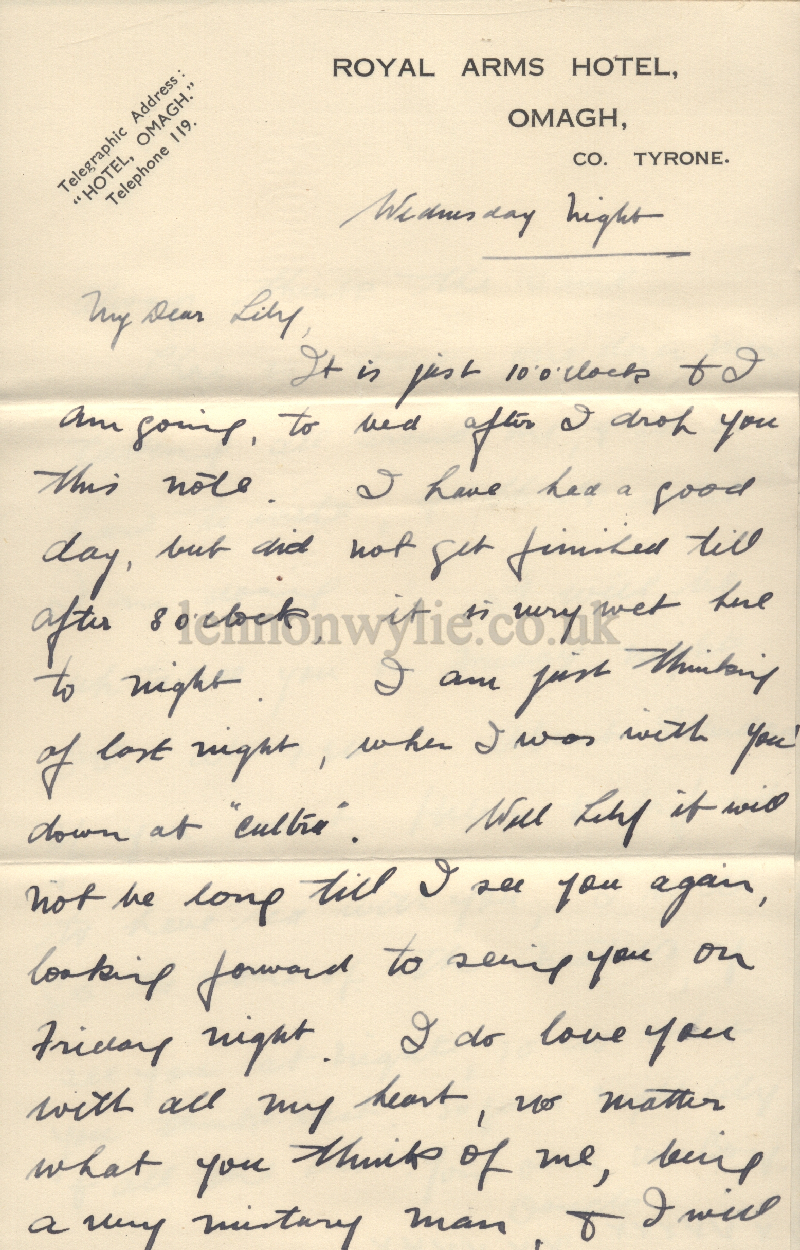 ROYAL ARMS HOTEL,
OMAGH,
CO. TYRONE.
Telegraphic Address:
"HOTEL, OMAGH."
Telephone 119.
Wednesday Night
My Dear Lily,
It is just 10 o'clock & I
am going, to bed after I drop you
this note. I have had a good
day, but did not get finished till
after 8 o'clock, it is very wet here
to night. I am just thinking
of last night, when I was with you
down at "Cultra". Well Lily it will
not be long till I see you again,
looking forward to seeing you on
Friday night. I do love you
with all my heart, no matter
what you think of me, being
a very mistary man, & I will
lennonwylie.co.uk